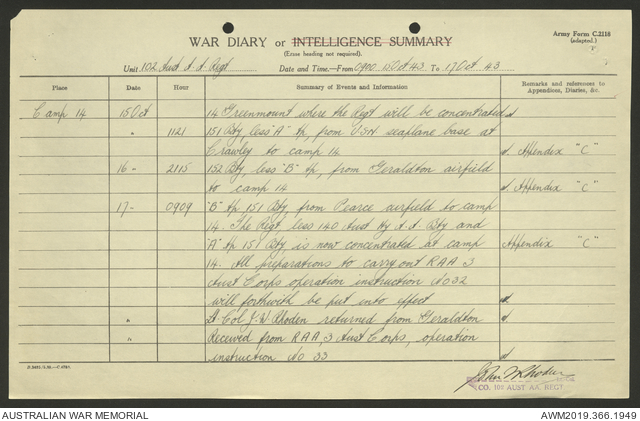 Army Form C.2118
(adapted.)
WAR DIARY or INTELLIGENCE SUMMARY
(Erase heading not required).
Unit 102 Aust A.A. Regt Date and Time.—From 0900 15 Oct 43 To 17 Oct 43
Place Date Hour Summary of Events and Information Remarks and references to Appendices, Diaries, &c.
Camp 14 15 Oct 14 Greenmount where the Regt will be concentrated
" 1121 151 Bty less "A" tp, from USN seaplane base at
Crawley to camp 14 Appendix "C"
16 - 2115 152 Bty, less "B" tp, from Geraldton airfield
to camp 14 Appendix "C"
17 - 0909 "B" tp 151 Bty, from Pearce airfield to camp
14. The Regt, less 140 Aust Hy A.A. Bty and
"A" tp 151 Bty is now concentrated at camp Appendix "C"
14. All preparations to carry out RAA 3
Aust Corps operation instruction NO 32
will forthwith be put into effect
" Lt. Col J. W. Rhoden returned from Geraldton
" Received from RAA, 3 Aust Corps, operation
instruction NO 33
John W Rhoden
CO. 102 AUST AA. REGT
AUSTRALIAN WAR MEMORIAL AWM2019.366.1949